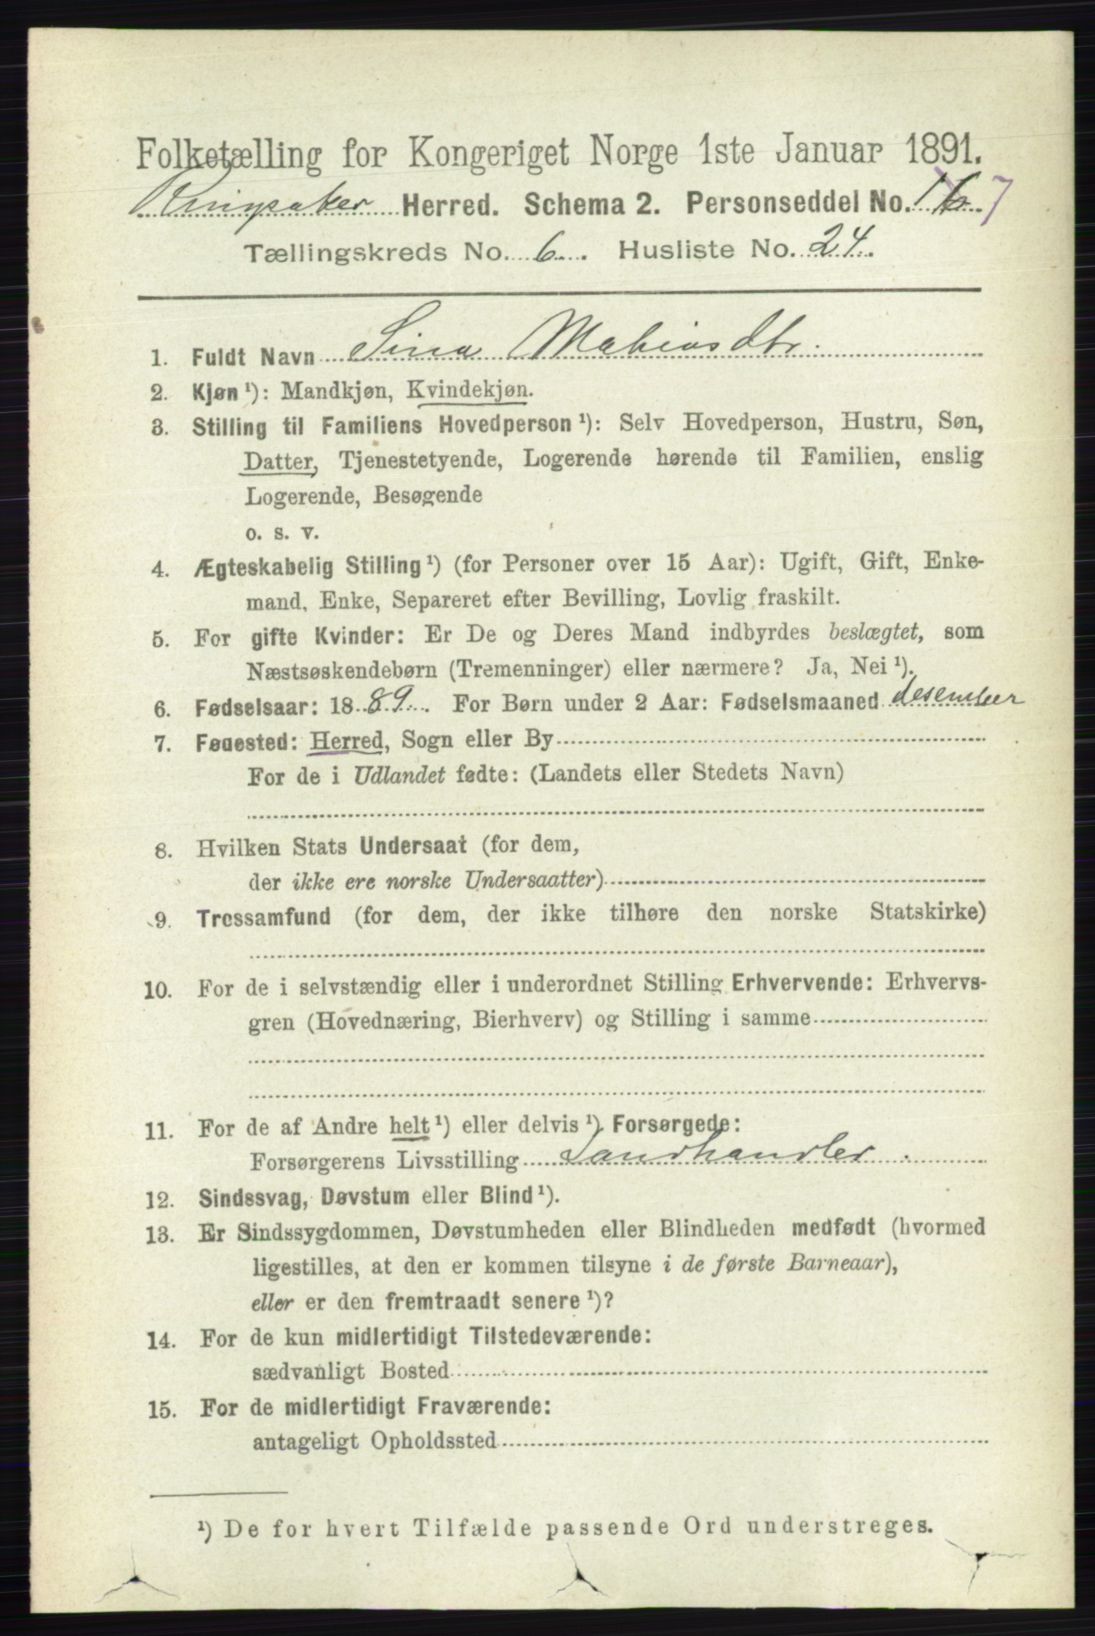 Folketælling for Kongeriget Norge 1ste Januar 1891.
Ringsaker Herred. Schema 2. Personseddel No. 16 7
Tællingskreds No. 6. Husliste No. 24.
1. Fuldt Navn Sina Mahiasdtr.
2. Kjøn ¹): Mandkjøn, Kvindekjøn.
3. Stilling til Familiens Hovedperson ¹): Selv Hovedperson, Hustru, Søn,
Datter, Tjenestetyende, Logerende hørende til Familien, enslig
Logerende, Besøgende
o. s. v.
4. Ægteskabelig Stilling ¹) (for Personer over 15 Aar): Ugift, Gift, Enke-
mand, Enke, Separeret efter Bevilling, Lovlig fraskilt.
5. For gifte Kvinder: Er De og Deres Mand indbyrdes beslægtet, som
Næstsøskendebørn (Tremenninger) eller nærmere? Ja, Nei ¹).
6. Fødselsaar: 1889. For Børn under 2 Aar: Fødselsmaaned desember
7. Fødested: Herred, Sogn eller By
For de i Udlandet fødte: (Landets eller Stedets Navn)
8. Hvilken Stats Undersaat (for dem,
der ikke ere norske Undersaatter)
9. Trossamfund (for dem, der ikke tilhøre den norske Statskirke)
10. For de i selvstændig eller i underordnet Stilling Erhvervende: Erhvervs-
gren (Hovednæring, Bierhverv) og Stilling i samme
11. For de af Andre helt ¹) eller delvis ¹) Forsørgede:
Forsørgerens Livsstilling Landhandler.
12. Sindssvag, Døvstum eller Blind ¹).
13. Er Sindssygdommen, Døvstumheden eller Blindheden medfødt (hvormed
ligestilles, at den er kommen tilsyne i de første Barneaar),
eller er den fremtraadt senere ¹)?
14. For de kun midlertidigt Tilstedeværende:
sædvanligt Bosted
15. For de midlertidigt Fraværende:
antageligt Opholdssted
¹) De for hvert Tilfælde passende Ord understreges.